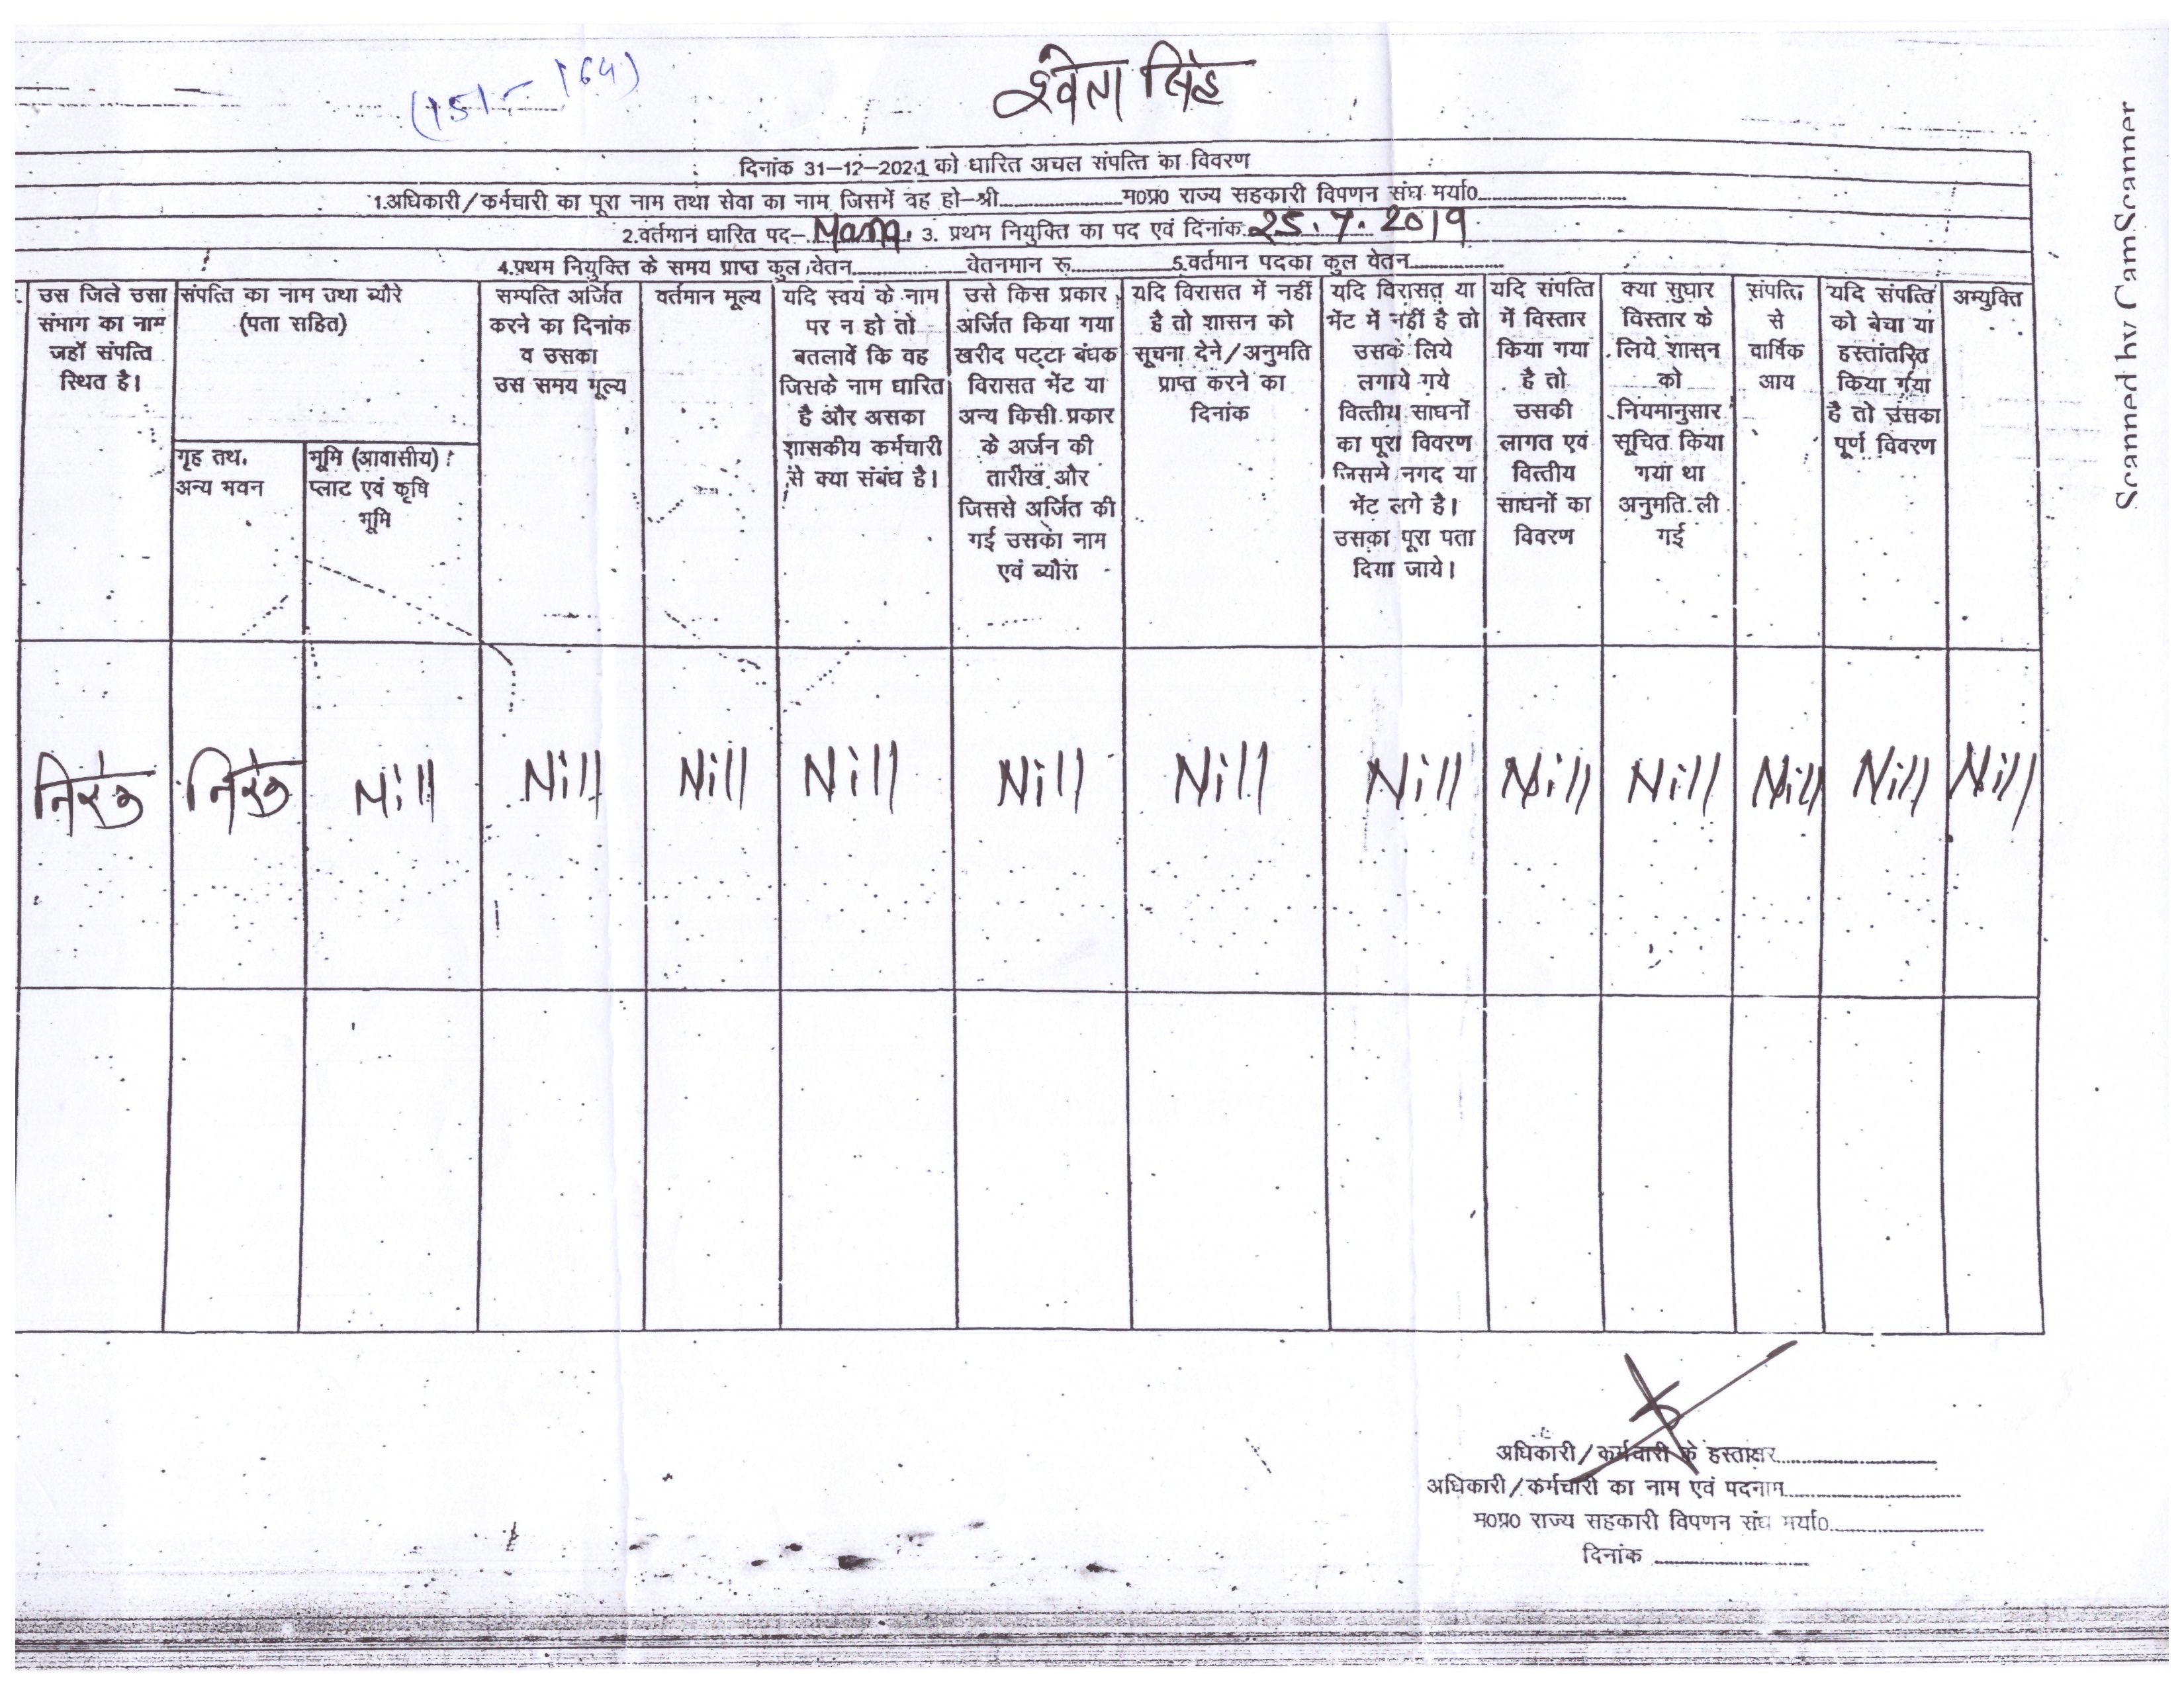 (151- 164)
श्वेता सिंह
दिनांक 31-12-2021 को धारित अचल संपत्ति का विवरण
1.अधिकारी/कर्मचारी का पूरा नाम तथा सेवा का नाम जिसमें वह हो-श्री....................म0प्र0 राज्य सहकारी विपणन संघ मर्या0....................
2.वर्तमान धारित पद- 3. प्रथम नियुक्ति का पद एवं दिनांक 25.7.2019
4.प्रथम नियुक्ति के समय प्राप्त कुल वेतन....................वेतनमान रू....................5.वर्तमान पदका कुल वेतन....................
उस जिले उसा
संभाग का नाम
जहाँ संपत्ति
स्थित है।
संपत्ति का नाम तथा ब्यौरे
(पता सहित)
गृह तथा
अन्य भवन
भूमि (आवासीय)
प्लाट एवं कृषि
भूमि
सम्पत्ति अर्जित
करने का दिनांक
व उसका
उस समय मूल्य
वर्तमान मूल्य
यदि स्वयं के नाम
पर न हो तो
बतलावें कि वह
जिसके नाम धारित
है और असका
शासकीय कर्मचारी
से क्या संबंध है।
उसे किस प्रकार
अर्जित किया गया
खरीद पट्टा बंधक
विरासत भेंट या
अन्य किसी प्रकार
के अर्जन की
तारीख और
जिससे अर्जित की
गई उसका नाम
एवं ब्यौरा
यदि विरासत में नहीं
है तो शासन को
सूचना देने/अनुमति
प्राप्त करने का
दिनांक
यदि विरासत या
भेंट में नहीं है तो
उसके लिये
लगाये गये
वित्तीय साधनों
का पूरा विवरण
जिसमे नगद या
भेंट लगे है।
उसका पूरा पता
दिया जाये।
यदि संपत्ति
में विस्तार
किया गया
है तो
उसकी
लागत एवं
वित्तीय
साधनों का
विवरण
क्या सुधार
विस्तार के
लिये शासन
को
नियमानुसार
सूचित किया
गया था
अनुमति ली
गई
संपत्ति
से
वार्षिक
आय
यदि संपत्ति
को बेचा या
हस्तांतरित
किया गया
है तो उसका
पूर्ण विवरण
अभ्युक्ति
निरंक निरंक Nill Nill Nill Nill Nill Nill Nill Nill Nill Nill Nill Nill
अधिकारी/कर्मचारी के हस्ताक्षर....................
अधिकारी/कर्मचारी का नाम एवं पदनाम....................
म0प्र0 राज्य सहकारी विपणन संघ मर्या0....................
दिनांक ....................
Scanned by CamScanner